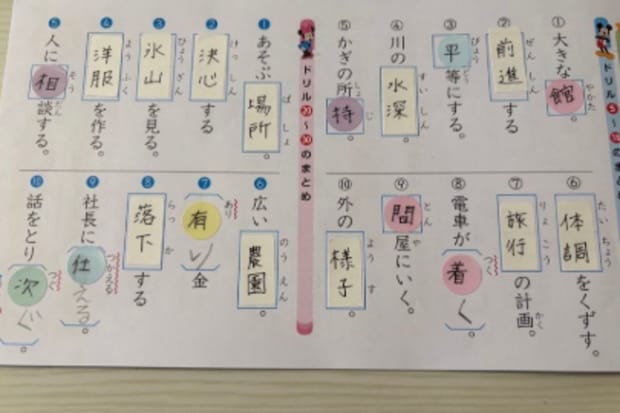 ドリル⑤~⑲のまとめ
① 大きな館。
やかた
② 前進する
ぜんしん
③ 平等にする。
びょうどう
④ 川の水深。
すいしん
⑤ かぎの所持。
しょじ
⑥ 体調をくずす。
たいちょう
⑦ 旅行の計画。
りょこう かく
⑧ 電車が着く。
つく
⑨ 問屋にいく。
とんや
⑩ 外の様子。
ようす
ドリル⑳~㉚のまとめ
① あそぶ場所。
ばしょ
② 決心する
けっしん
③ 氷山を見る。
ひょうざん
④ 洋服を作る。
ようふく
⑤ 人に相談する。
そうだん
⑥ 広い農園。
のうえん
⑦ 有り金
あり
⑧ 落下する
らっか
⑨ 社長に仕える。
つかえる
⑩ 話をとり次ぐ。
つぐ